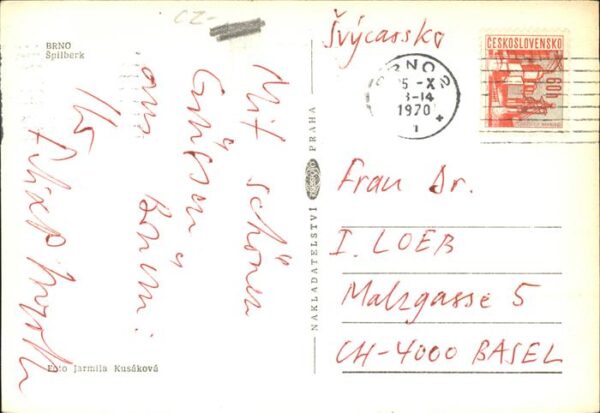 CZ-
BRNO
Špilberk
Mit schönen
Grüssen
aus
Ihr
Foto Jarmila Kusáková
NAKLADATELSTVÍ PRAHA
Švýcarsko
BRNO 2
-X
-14
1970
1
ČESKOSLOVENSKO
60h
Frau Dr.
I. LOEB
Malzgasse 5
CH-4000 BASEL